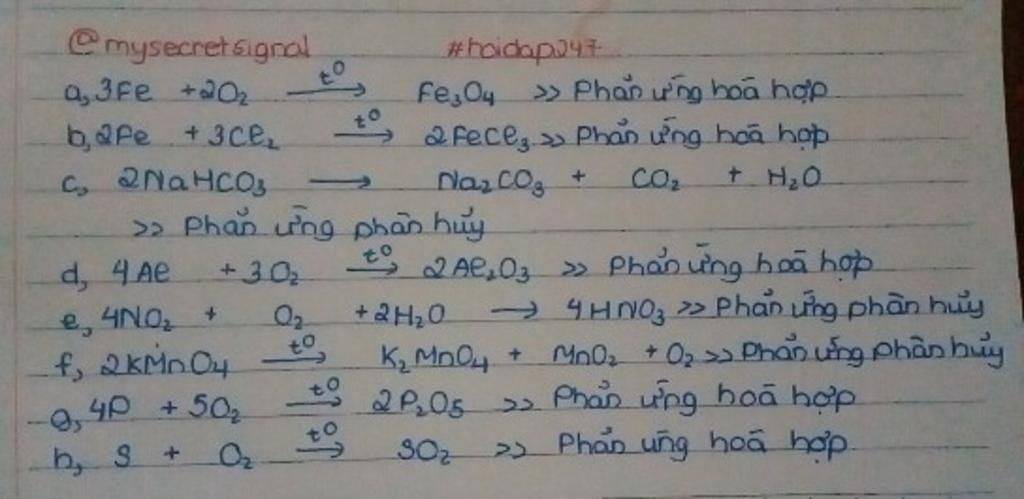 @mysecretsignal #hoidap247
a, 3Fe + 2O₂ —t⁰→ Fe₃O₄ >> Phản ứng hoá hợp
b, 2Fe + 3Cl₂ —t⁰→ 2FeCl₃ >> Phản ứng hoá hợp
c, 2NaHCO₃ → Na₂CO₃ + CO₂ + H₂O
>> Phản ứng phân hủy
d, 4Al + 3O₂ —t⁰→ 2Al₂O₃ >> Phản ứng hoá hợp
e, 4NO₂ + O₂ + 2H₂O → 4HNO₃ >> Phản ứng phân hủy
f, 2KMnO₄ —t⁰→ K₂MnO₄ + MnO₂ + O₂ >> Phản ứng phân hủy
g, 4P + 5O₂ —t⁰→ 2P₂O₅ >> Phản ứng hoá hợp
h, S + O₂ —t⁰→ SO₂ >> Phản ứng hoá hợp